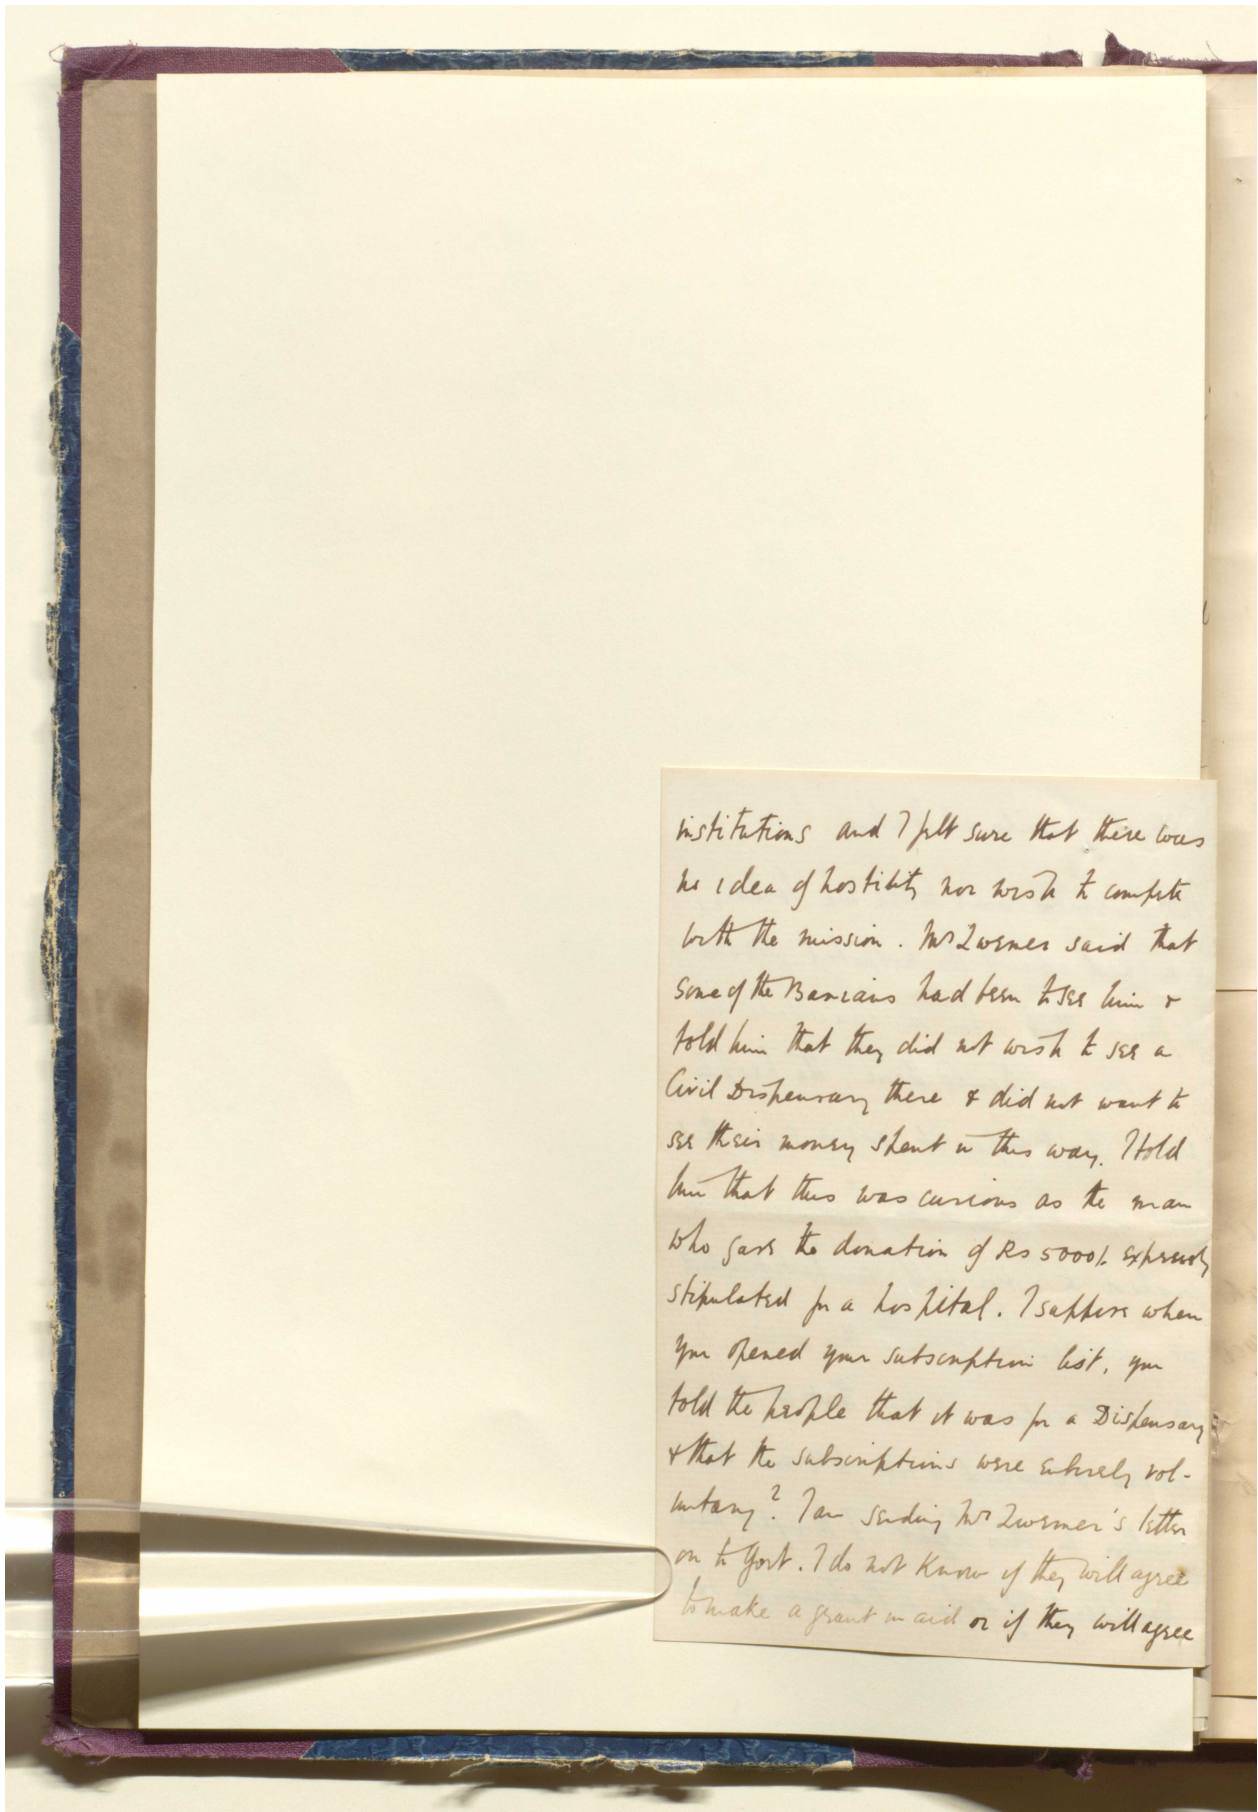 institutions and I felt sure that there was
no idea of hostility nor wish to compete
with the mission. Mr Zwemer said that
some of the Banians had been to see him &
told him that they did not wish to see a
Civil Dispensary there & did not want to
see their money spent in this way. I told
him that this was curious as the man
who gave the donation of Rs 5000/- expressly
stipulated for a hospital. I suppose when
you opened your subscription list, you
told the people that it was for a Dispensary
& that the subscriptions were entirely vol-
untary? I am sending Mr Zwemer's letter
on to Govt. I do not know if they will agree
to make a grant in aid or if they will agree